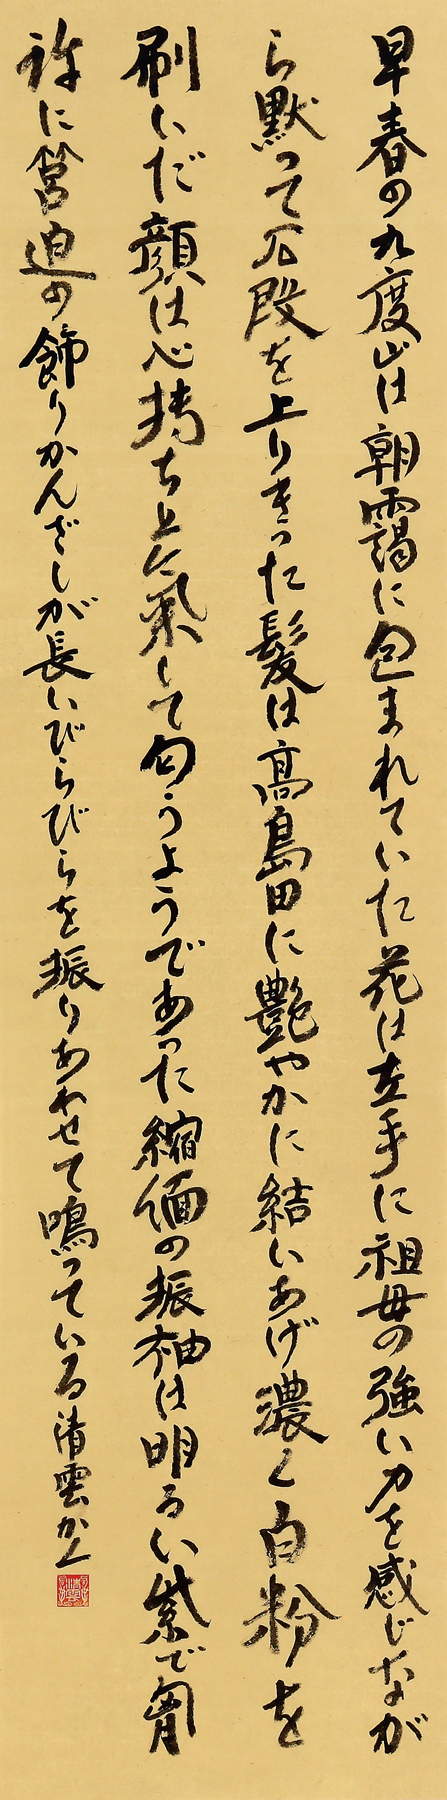 早春の九度山は朝靄に包まれていた花は左手に祖母の強い力を感じなが
ら黙って石段を上りきった髪は高島田に艶やかに結いあげ濃く白粉を
刷いだ顔は心持ち上氣して匂うようであった縮緬の振袖は明るい紫で胸
許に筥迫の飾りかんざしが長いびらびらを振りあわせて鳴っている清雲かく